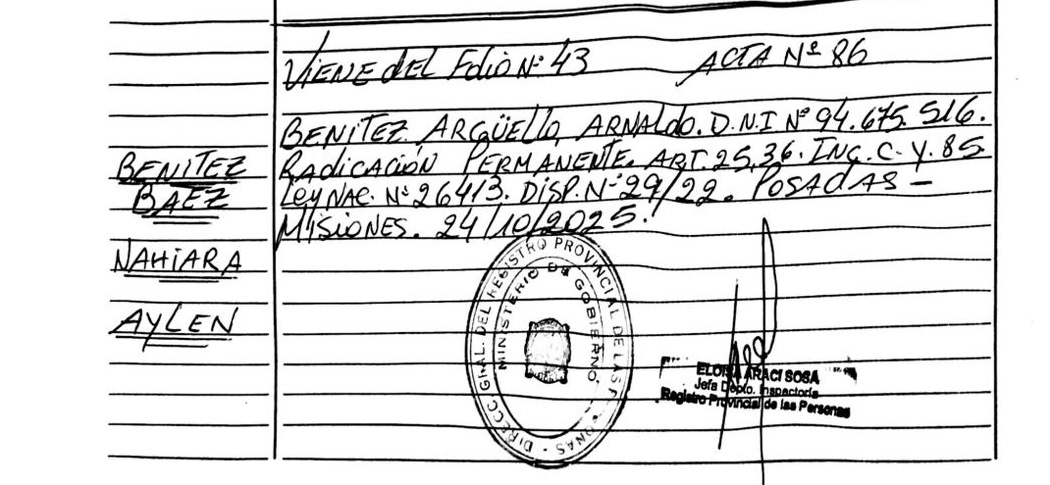 VIENE dEL FoLio N: 43 ACTA Nº 86
BENITEZ ARGÜELLO, ARNALDO. D.N.I Nº 94.675.516.
RADICACIÓN PERMANENTE. ART. 25, 36. INC. C. Y. 85
Ley NAC. Nº 26413. DISP. Nº 29/22. POSADAS -
MISIONES. 24/10/2025.
BENITEZ
BAEZ
NAHIARA
AYLEN
DIRECC. GRAL. DEL REGISTRO PROVINCIAL DE LAS
MINISTERIO DE GOBIERNO
ELOISA ARACI SOSA
Jefa Depto. Inspectoria
Registro Provincial de las Personas